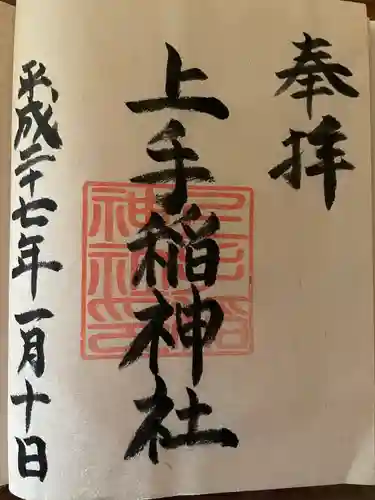 奉拝
上手稲神社
平成二十七年一月十日